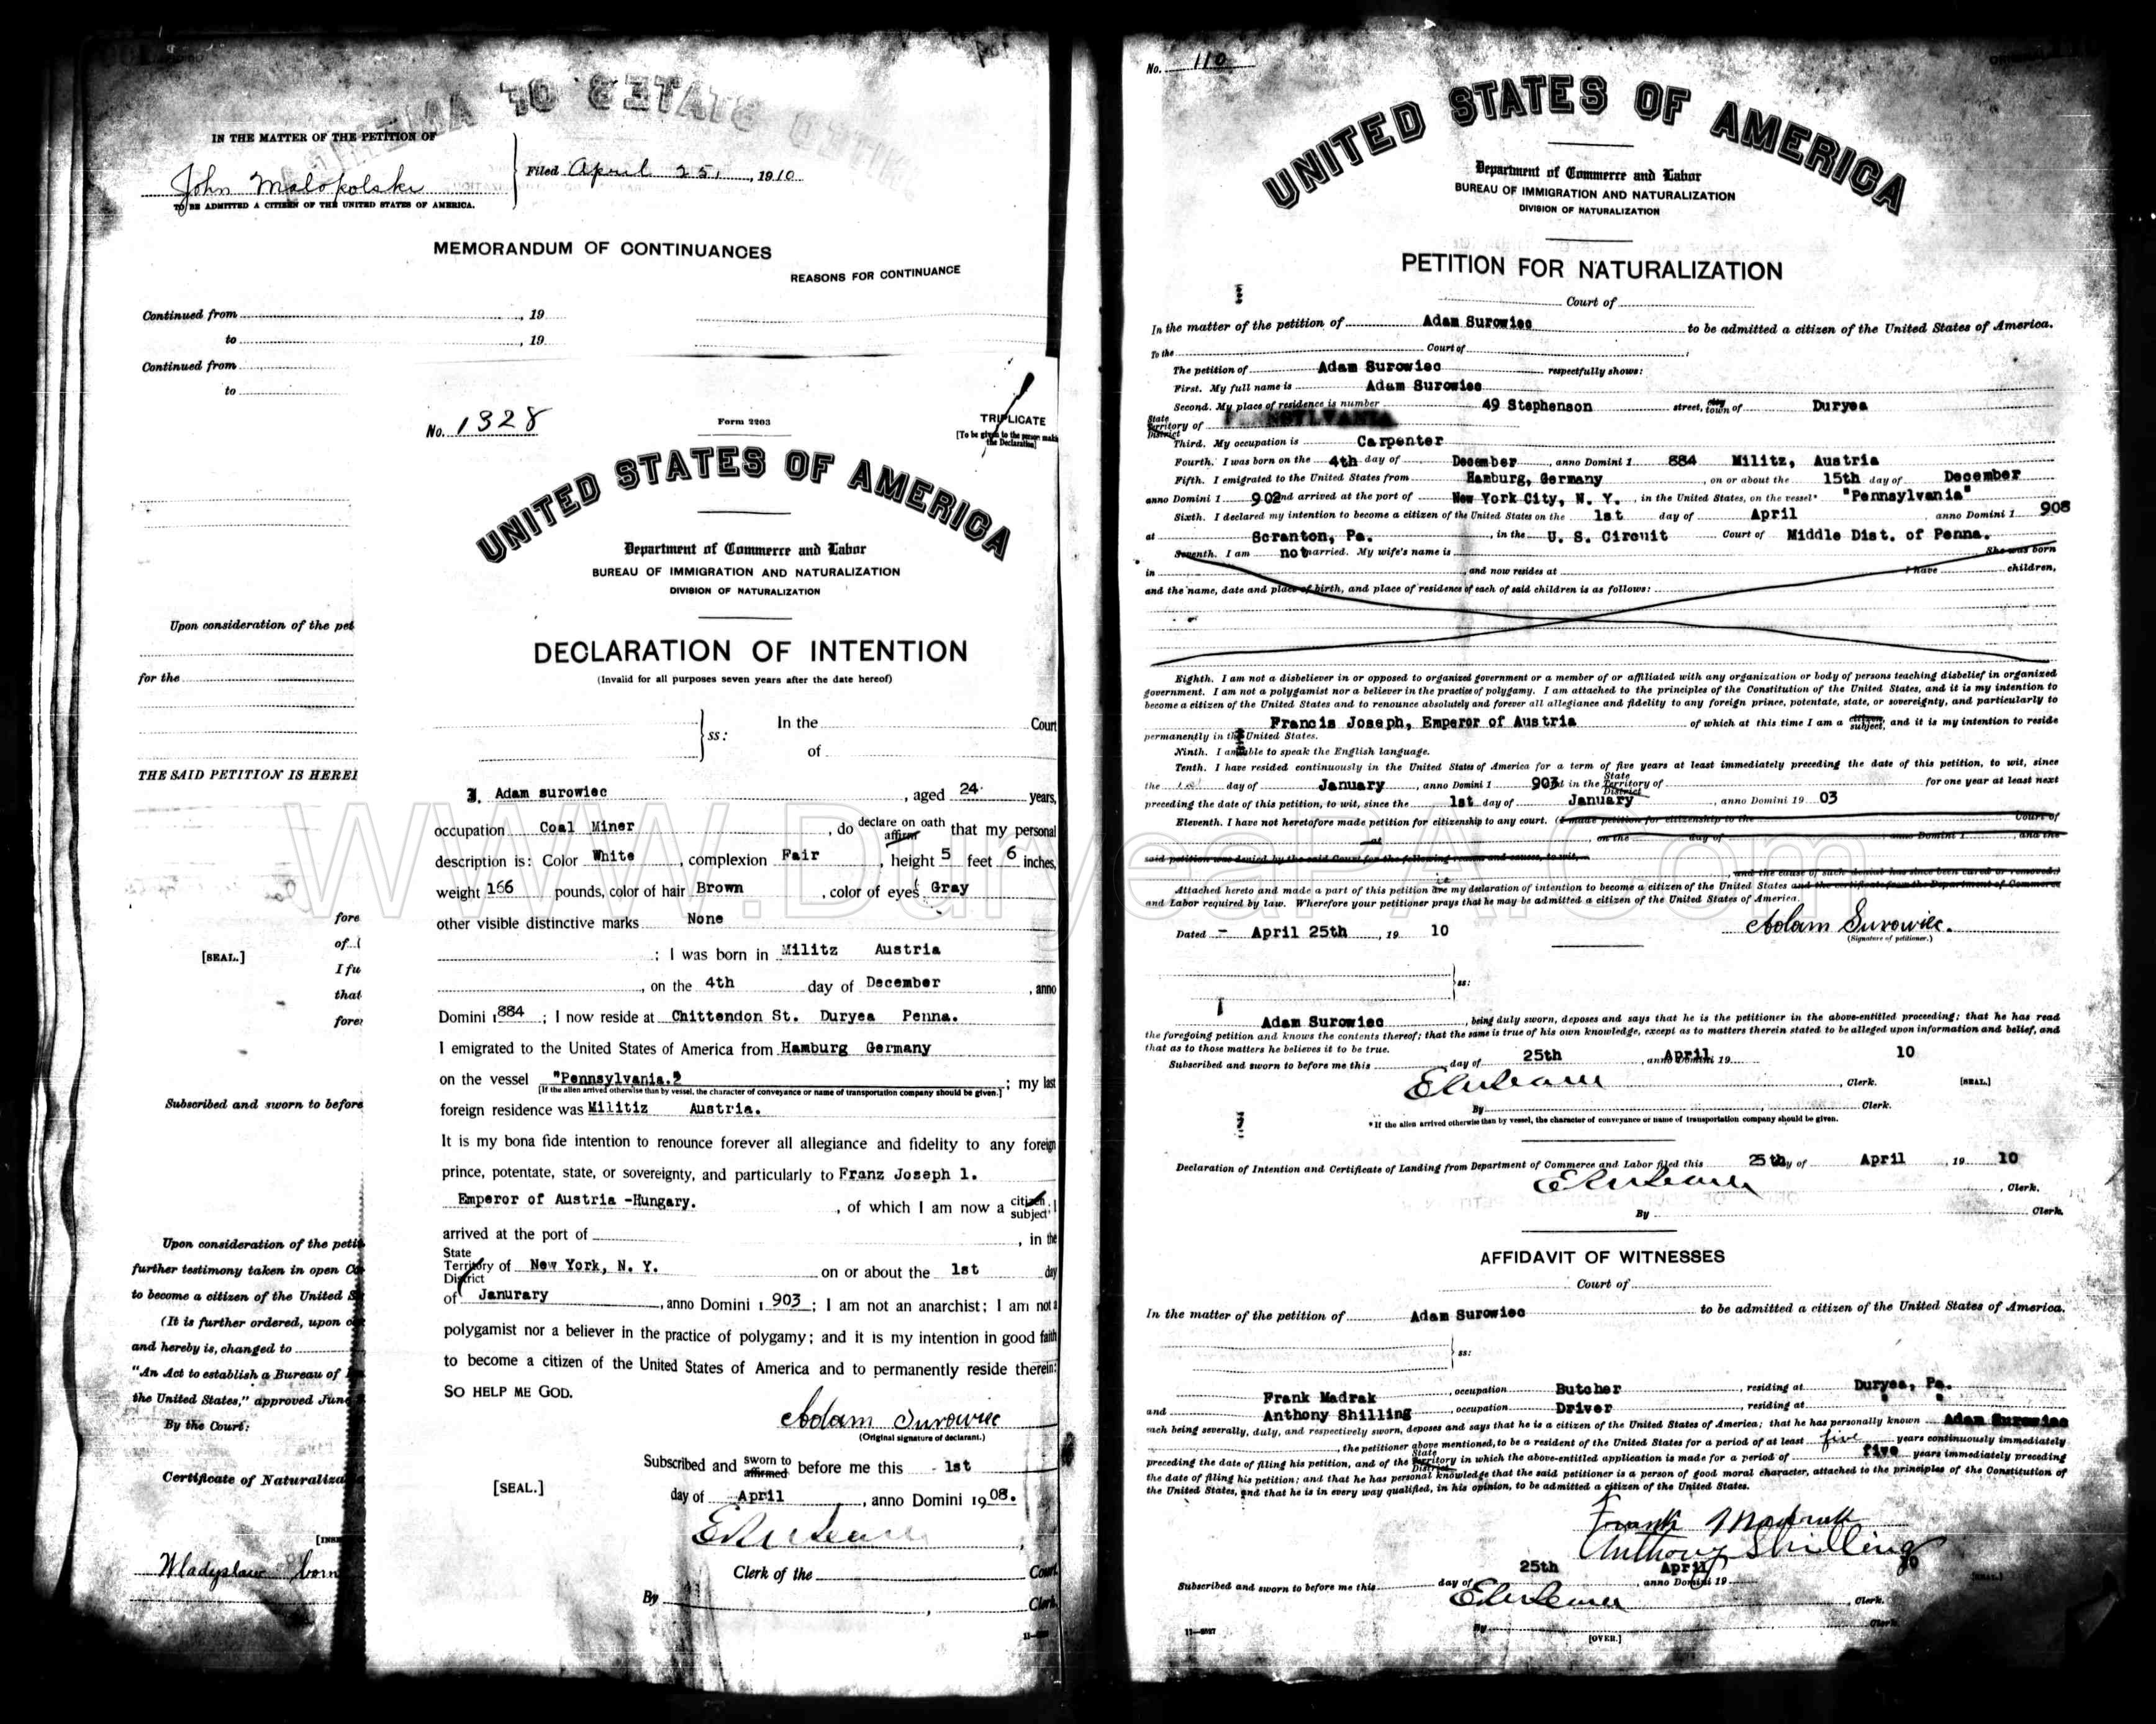 IN THE MATTER OF THE PETITION OF
John Malokolski
Filed April 25, 1910
TO BE ADMITTED A CITIZEN OF THE UNITED STATES OF AMERICA.
MEMORANDUM OF CONTINUANCES
REASONS FOR CONTINUANCE
Continued from , 19
to , 19
Continued from
to
Upon consideration of the pet
for the
THE SAID PETITION IS HEREI
fore
of
[SEAL.]
I fu
that
fore
Subscribed and sworn to before
Upon consideration of the peti
further testimony taken in open
to become a citizen of the United
(It is further ordered, upon
and hereby is, changed to
"An Act to establish a Bureau of
the United States," approved June
By the Court:
Certificate of Naturaliza
Wladyslaw born
No. 1328
Form 2203
TRIPLICATE
[To be given to the person making the Declaration]
UNITED STATES OF AMERICA
Department of Commerce and Labor
BUREAU OF IMMIGRATION AND NATURALIZATION
DIVISION OF NATURALIZATION
DECLARATION OF INTENTION
(Invalid for all purposes seven years after the date hereof)
In the Court
ss:
of
I, Adam surowiec , aged 24 years,
occupation Coal Miner , do declare on oath affirm that my personal
description is: Color White , complexion Fair , height 5 feet 6 inches,
weight 166 pounds, color of hair Brown , color of eyes Gray
other visible distinctive marks None
; I was born in Militz Austria
, on the 4th day of December , anno
Domini 1884 ; I now reside at Chittendon St. Duryea Penna.
I emigrated to the United States of America from Hamburg Germany
on the vessel "Pennsylvania." ; my last
[If the alien arrived otherwise than by vessel, the character of conveyance or name of transportation company should be given.]
foreign residence was Militiz Austria.
It is my bona fide intention to renounce forever all allegiance and fidelity to any foreign
prince, potentate, state, or sovereignty, and particularly to Franz Joseph 1.
Emperor of Austria -Hungary. , of which I am now a citizen subject; I
arrived at the port of , in the
State Territory District of New York, N. Y. on or about the 1st day
of Janurary , anno Domini 1 903 ; I am not an anarchist; I am not a
polygamist nor a believer in the practice of polygamy; and it is my intention in good faith
to become a citizen of the United States of America and to permanently reside therein:
SO HELP ME GOD.
Adam Surowiec
(Original signature of declarant.)
Subscribed and sworn to affirmed before me this 1st
[SEAL.]
day of April , anno Domini 1908.
Clerk of the Court.
By , Clerk.
No. 110
UNITED STATES OF AMERICA
Department of Commerce and Labor
BUREAU OF IMMIGRATION AND NATURALIZATION
DIVISION OF NATURALIZATION
PETITION FOR NATURALIZATION
Court of
In the matter of the petition of Adam Surowiec to be admitted a citizen of the United States of America.
To the Court of
The petition of Adam Surowiec respectfully shows:
First. My full name is Adam Surowiec
Second. My place of residence is number 49 Stephenson street, city town of Duryea
State Territory District of PENNSYLVANIA
Third. My occupation is Carpenter
Fourth. I was born on the 4th day of December , anno Domini 1 884 Militz, Austria
Fifth. I emigrated to the United States from Hamburg, Germany , on or about the 15th day of December
anno Domini 1 902 and arrived at the port of New York City, N. Y. , in the United States, on the vessel* "Pennsylvania"
Sixth. I declared my intention to become a citizen of the United States on the 1st day of April , anno Domini 1 908
at Scranton, Pa. , in the U. S. Circuit Court of Middle Dist. of Penna.
Seventh. I am not married. My wife's name is She was born
in , and now resides at I have children,
and the name, date and place of birth, and place of residence of each of said children is as follows:
Eighth. I am not a disbeliever in or opposed to organized government or a member of or affiliated with any organization or body of persons teaching disbelief in organized
government. I am not a polygamist nor a believer in the practice of polygamy. I am attached to the principles of the Constitution of the United States, and it is my intention to
become a citizen of the United States and to renounce absolutely and forever all allegiance and fidelity to any foreign prince, potentate, state, or sovereignty, and particularly to
Francis Joseph, Emperor of Austria of which at this time I am a citizen subject; and it is my intention to reside
permanently in the United States.
Ninth. I am able to speak the English language.
Tenth. I have resided continuously in the United States of America for a term of five years at least immediately preceding the date of this petition, to wit, since
the 1st day of January , anno Domini 1 903 and in the State Territory District of for one year at least next
preceding the date of this petition, to wit, since the 1st day of January , anno Domini 19 03
Eleventh. I have not heretofore made petition for citizenship to any court. (I made petition for citizenship to the Court of
at , on the day of anno Domini 1 , and the
said petition was denied by the said Court for the following reasons and causes, to wit,
, and the cause of such denial has since been cured or removed.)
Attached hereto and made a part of this petition are is my declaration of intention to become a citizen of the United States and the certificate from the Department of Commerce
and Labor required by law. Wherefore your petitioner prays that he may be admitted a citizen of the United States of America.
Dated - April 25th , 19 10
Adam Surowiec.
(Signature of petitioner.)
ss:
Adam Surowiec , being duly sworn, deposes and says that he is the petitioner in the above-entitled proceeding; that he has read
the foregoing petition and knows the contents thereof; that the same is true of his own knowledge, except as to matters therein stated to be alleged upon information and belief, and
that as to those matters he believes it to be true.
Subscribed and sworn to before me this 25th day of April , anno Domini 19 10
, Clerk. [SEAL.]
By Clerk.
*If the alien arrived otherwise than by vessel, the character of conveyance or name of transportation company should be given.
Declaration of Intention and Certificate of Landing from Department of Commerce and Labor filed this 25th day of April , 19 10
, Clerk.
By Clerk.
AFFIDAVIT OF WITNESSES
Court of
In the matter of the petition of Adam Surowiec to be admitted a citizen of the United States of America.
ss:
Frank Madrak , occupation Butcher , residing at Duryea, Pa.
and Anthony Shilling , occupation Driver , residing at " "
each being severally, duly, and respectively sworn, deposes and says that he is a citizen of the United States of America; that he has personally known Adam Surowiec
, the petitioner above mentioned, to be a resident of the United States for a period of at least five years continuously immediately
preceding the date of filing his petition, and of the State Territory District in which the above-entitled application is made for a period of five years immediately preceding
the date of filing his petition; and that he has personal knowledge that the said petitioner is a person of good moral character, attached to the principles of the Constitution of
the United States, and that he is in every way qualified, in his opinion, to be admitted a citizen of the United States.
Frank Madrak
Anthony Shilling
Subscribed and sworn to before me this 25th day of April , anno Domini 19 10
, Clerk. [SEAL.]
By Clerk.
[OVER.]
www.DuryeaPA.com